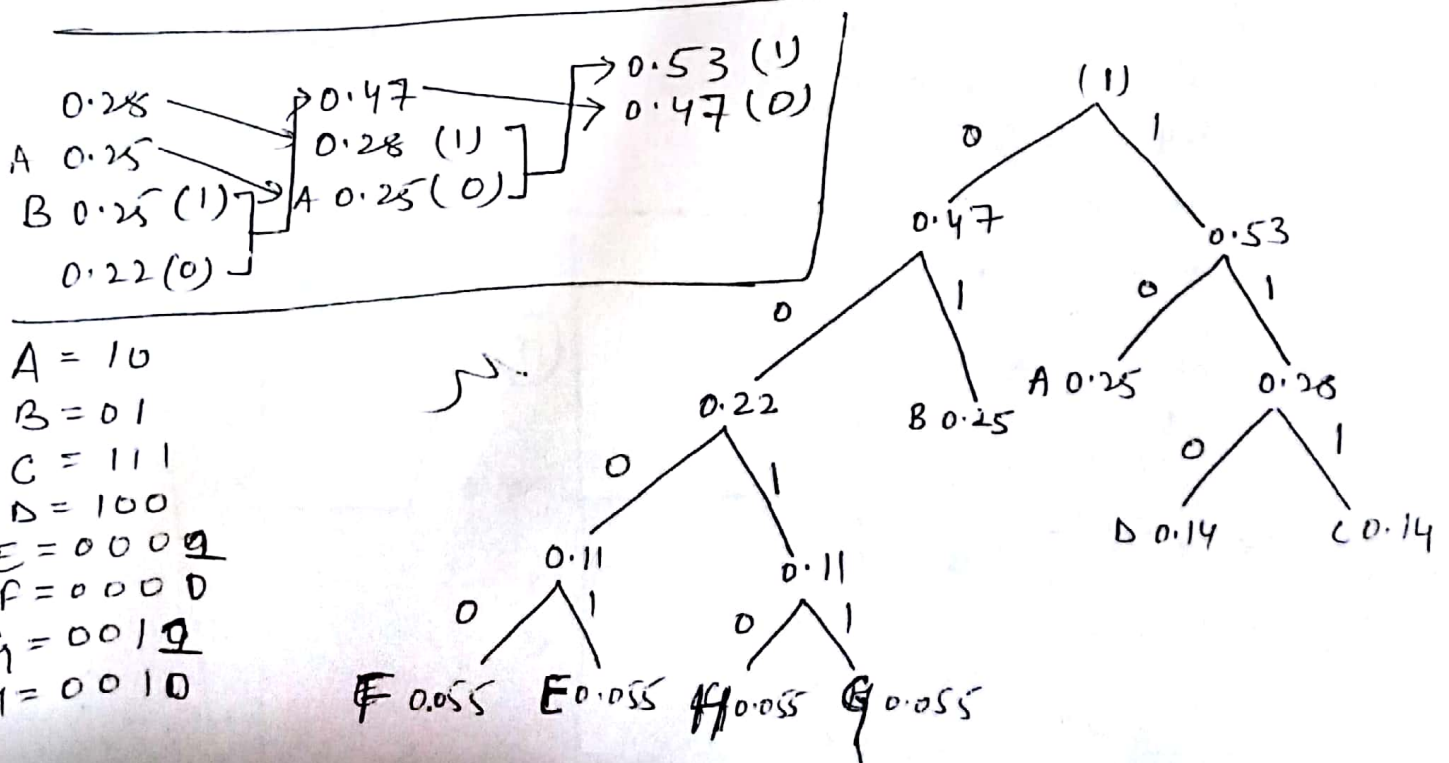 0.28
A 0.25
B 0.25 (1)
0.22 (0)
0.47
0.28 (1)
A 0.25 (0)
0.53 (1)
0.47 (0)
A = 10
B = 01
C = 111
D = 100
E = 000
F = 0000
= 001
= 0010
(1)
0 1
0.47 0.53
0 1 0 1
0.22 B 0.25 A 0.25 0.28
0 1 0 1
0.11 0.11 D 0.14 C 0.14
0 1 0 1
F 0.055 E 0.055 H 0.055 G 0.055